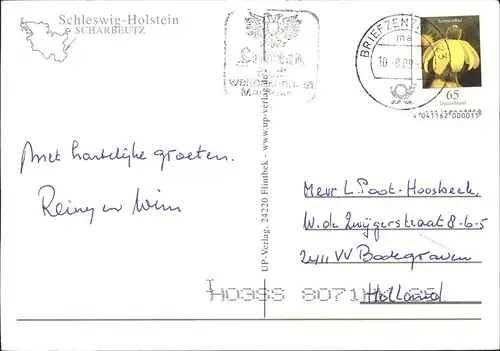 Schleswig-Holstein
SCHARBEUTZ
Met hartelijke groeten.
Reiny en Wim
UP-Verlag, 24220 Flintbek - www.up-verlag.de
BRIEFZENTRUM 23
ma
10.-8.09
Sonnenhut
65
Deutschland
4 041162 000015
Mevr L. Poot-Hoosbeek
W. de Zwijgerstraat 8-6-5
2411 VV Bodegraven
Holland
H0388 8071